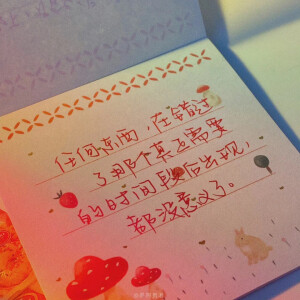 任何东西，在错过
了那个真正需要
的时间段后出现，
都没意义了。